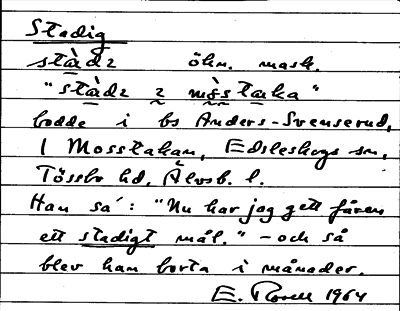 Stadig
stàdz öhn. mask.
"stàdz z mòstaka"
bodde i bs Anders-Svenserud,
I Mosstakan, Edsleskogs sn,
Tössbo hd, Älvsb. l.
Han sa': "Nu har jag gett fåren
ett stadigt mål." - och så
blev han borta i månader.
E. 1964